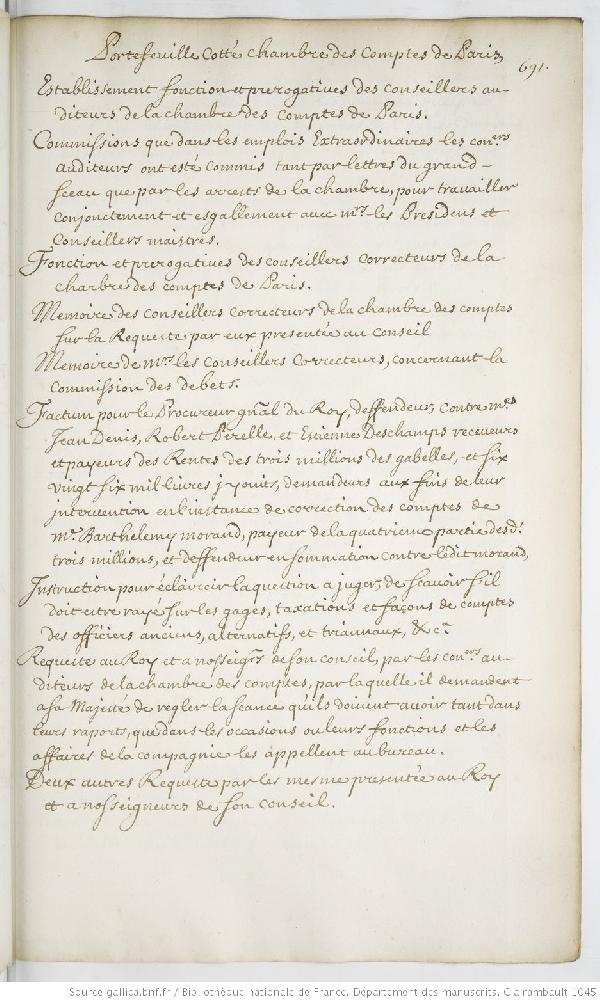 Portefeuille Cotté Chambre des Comptes de Paris
691.
Establissement fonction et prerogatives des conseillers au-
diteurs de la chambre des comptes de Paris.
Commissions que dans les emplois Extraordinaires les con.ers
auditeurs ont esté commis tant par lettres du grand
sceau que par les arrests de la chambre, pour travailler
conjonctement et esgallement avec m.rs les Presidens et
Conseillers maistres.
Fonction et prerogatives des conseillers correcteurs de la
chambre des comptes de Paris.
Memoire des conseillers correcteurs de la chambre des comptes
sur la Requeste par eux presentée au conseil
Memoire de m.rs les Conseillers Correcteurs, concernant la
Commission des debets.
Factum pour le Procureur gnãl du Roy, deffendeur, contre m.es
Jean Denis, Robert Perelle, et Estienne Deschamps receveurs
et payeurs des Rentes des trois millions des gabelles, et six
vingt six mil livres y joints, demandeurs aux fins de leur
intervention en l'instance de correction des comptes de
m.e Barthelemy morand, payeur de la quatrieme partie desd.
trois millions, et deffendeur en sommation contre ledit morand,
Instruction pour éclaircir la question a juger, de scavoir s'il
doit estre rayé sur les gages, taxations et façons de comptes
des officiers anciens, alternatifs, et triannaux, &c.a
Requeste au Roy et a nosseig.rs de son conseil, par les con.ers au-
diteurs de la chambre des comptes, par laquelle il demandent
a sa Majesté de regler la séance qu'ils doivent avoir tant dans
leurs raports, que dans les occasions ou leurs fonctions et les
affaires de la compagnie les appellent au bureau.
Deux autres Requeste par les mesme presentée au Roy
et a nosseigneurs de son conseil.
Source gallica.bnf.fr / Bibliothèque nationale de France. Département des manuscrits. Clairambault 1045